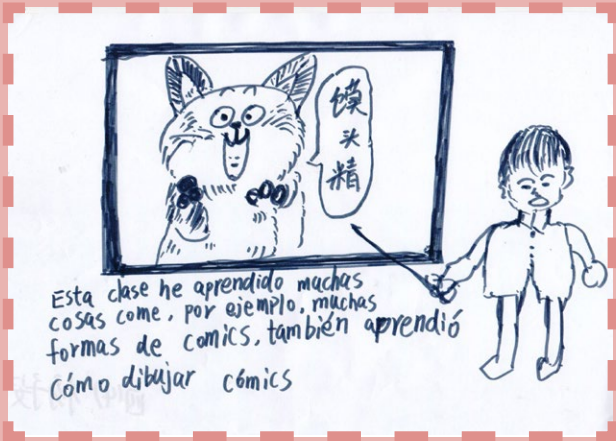 馍
头
精
Esta clase he aprendido muchas
cosas come, por ejemplo, muchas
formas de comics, también aprendió
cómo dibujar cómics